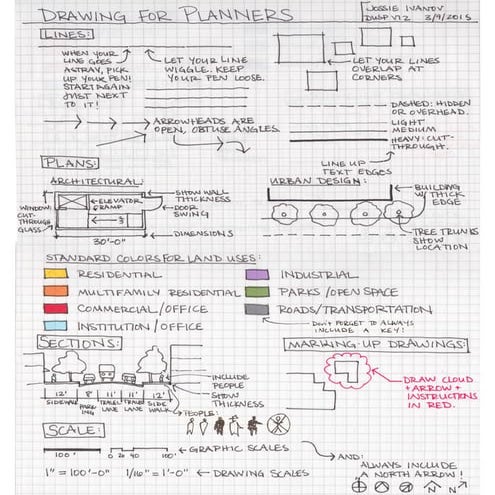 DRAWING FOR PLANNERS
JOSSIE IVANOV
DUSP V12 3/9/2015
LINES:
WHEN YOUR
LINE GOES
ASTRAY, PICK
UP YOUR PEN!
START AGAIN
JUST NEXT
TO IT!
LET YOUR LINE
WIGGLE. KEEP
YOUR PEN LOOSE.
LET YOUR LINES
OVERLAP AT
CORNERS
ARROWHEADS ARE
OPEN, OBTUSE ANGLES
DASHED: HIDDEN
OR OVERHEAD.
LIGHT
MEDIUM
HEAVY: CUT-
THROUGH.
LINE UP
TEXT EDGES
PLANS:
ARCHITECTURAL:
WINDOW:
CUT-
THROUGH
GLASS
ELEVATOR
RAMP
SHOW WALL
THICKNESS
DOOR
SWING
DIMENSIONS
30'-0"
URBAN DESIGN:
BUILDING
W/THICK
EDGE
TREE TRUNKS
SHOW
LOCATION
STANDARD COLORS FOR LAND USES:
RESIDENTIAL
MULTIFAMILY RESIDENTIAL
COMMERCIAL/OFFICE
INSTITUTION/OFFICE
INDUSTRIAL
PARKS/OPEN SPACE
ROADS/TRANSPORTATION
DON'T FORGET TO ALWAYS
INCLUDE A KEY!
SECTIONS:
INCLUDE
PEOPLE
SHOW
THICKNESS
12' 8' 11' 11' 12'
SIDEWALK PARKING TRAVEL LANE TRAVEL LANE SIDEWALK
PEOPLE:
MARKING-UP DRAWINGS:
DRAW CLOUD
+ARROW+
INSTRUCTIONS
IN RED.
SCALE:
100' 0 20 40 100'
GRAPHIC SCALES
1" = 100'-0" 1/16" = 1'-0" DRAWING SCALES
AND:
ALWAYS INCLUDE
A NORTH ARROW!
N